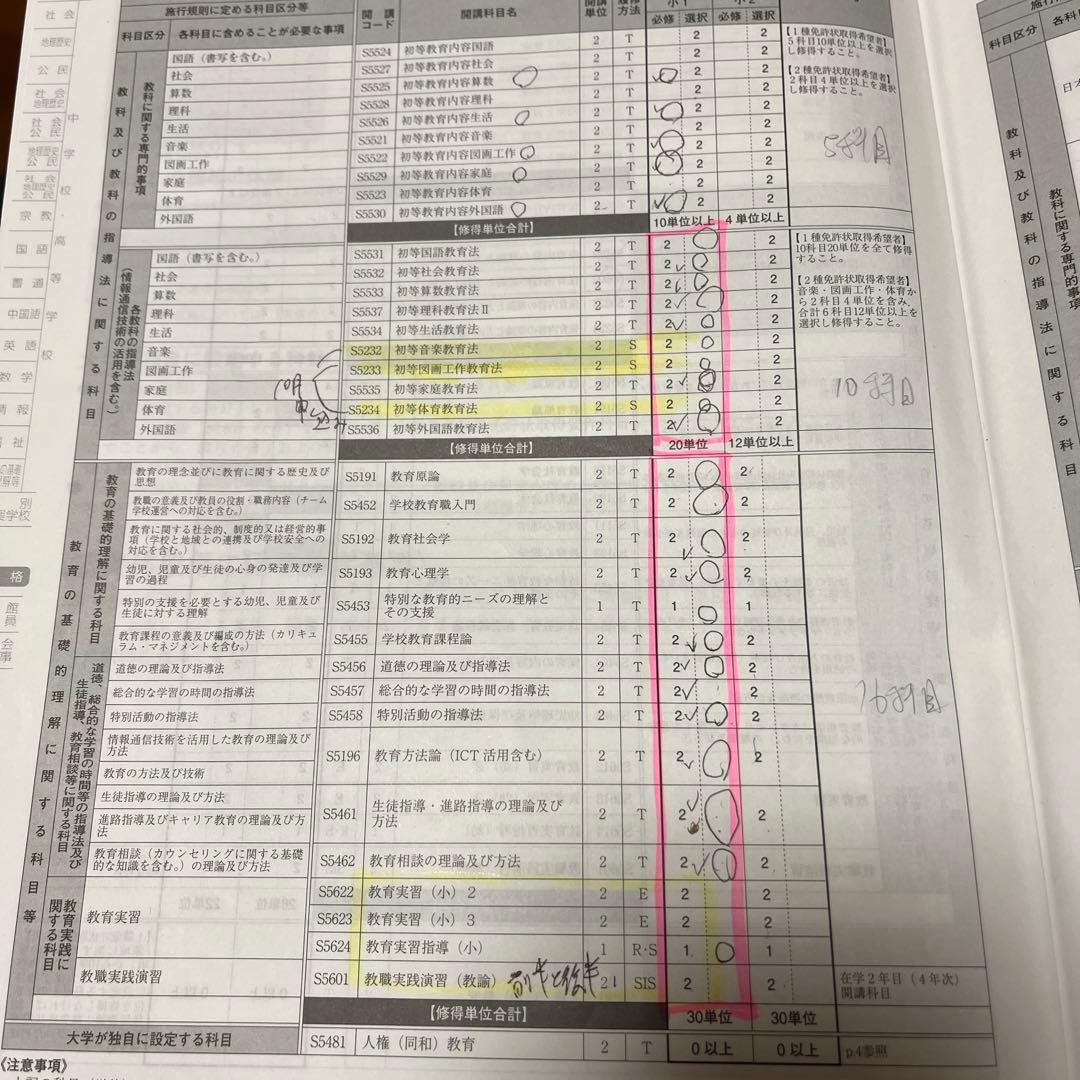 施行規則に定める科目区分等 開講コード 開講科目名 開講単位 履修方法 小1 小2
科目区分 各科目に含めることが必要な事項 必修 選択 必修 選択
教科及び教科の指導法に関する科目
教科に関する専門的事項
国語（書写を含む。） S5524 初等教育内容国語 2 T 2 2
社会 S5527 初等教育内容社会 2 T 2 2
算数 S5525 初等教育内容算数 2 T 2 2
理科 S5528 初等教育内容理科 2 T 2 2
生活 S5526 初等教育内容生活 2 T 2 2
音楽 S5521 初等教育内容音楽 2 T 2 2
図画工作 S5522 初等教育内容図画工作 2 T 2 2
家庭 S5529 初等教育内容家庭 2 T 2 2
体育 S5523 初等教育内容体育 2 T 2 2
外国語 S5530 初等教育内容外国語 2 T 2 2
【1種免許状取得希望者】
5科目10単位以上を選択し修得すること。
【2種免許状取得希望者】
2科目4単位以上を選択し修得すること。
5科目
【修得単位合計】 10単位以上 4単位以上
各教科の指導法（情報通信技術の活用を含む。）
国語（書写を含む。） S5531 初等国語教育法 2 T 2 2
社会 S5532 初等社会教育法 2 T 2 2
算数 S5533 初等算数教育法 2 T 2 2
理科 S5537 初等理科教育法Ⅱ 2 T 2 2
生活 S5534 初等生活教育法 2 T 2 2
音楽 S5232 初等音楽教育法 2 S 2 2
図画工作 S5233 初等図画工作教育法 2 S 2 2
家庭 S5535 初等家庭教育法 2 T 2 2
体育 S5234 初等体育教育法 2 S 2 2
外国語 S5536 初等外国語教育法 2 T 2 2
【1種免許状取得希望者】
10科目20単位を全て修得すること。
【2種免許状取得希望者】
音楽・図画工作・体育から2科目4単位を含み、合計6科目12単位以上を選択し修得すること。
10科目
【修得単位合計】 20単位 12単位以上
教育の基礎的理解に関する科目等
教育の基礎的理解に関する科目
教育の理念並びに教育に関する歴史及び思想 S5191 教育原論 2 T 2 2
教職の意義及び教員の役割・職務内容（チーム学校運営への対応を含む。） S5452 学校教育職入門 2 T 2 2
教育に関する社会的、制度的又は経営的事項（学校と地域との連携及び学校安全への対応を含む。） S5192 教育社会学 2 T 2 2
幼児、児童及び生徒の心身の発達及び学習の過程 S5193 教育心理学 2 T 2 2
特別の支援を必要とする幼児、児童及び生徒に対する理解 S5453 特別な教育的ニーズの理解とその支援 1 T 1 1
教育課程の意義及び編成の方法（カリキュラム・マネジメントを含む。） S5455 学校教育課程論 2 T 2 2
道徳、総合的な学習の時間等の指導法及び生徒指導、教育相談等に関する科目
道徳の理論及び指導法 S5456 道徳の理論及び指導法 2 T 2 2
総合的な学習の時間の指導法 S5457 総合的な学習の時間の指導法 2 T 2 2
特別活動の指導法 S5458 特別活動の指導法 2 T 2 2
情報通信技術を活用した教育の理論及び方法
教育の方法及び技術 S5196 教育方法論（ICT活用含む） 2 T 2 2
生徒指導の理論及び方法
進路指導及びキャリア教育の理論及び方法 S5461 生徒指導・進路指導の理論及び方法 2 T 2 2
教育相談（カウンセリングに関する基礎的な知識を含む。）の理論及び方法 S5462 教育相談の理論及び方法 2 T 2 2
教育実践に関する科目
教育実習 S5622 教育実習（小）2 2 E 2 2
S5623 教育実習（小）3 2 E 2 2
S5624 教育実習指導（小） 1 R・S 1 1
教職実践演習 S5601 教職実践演習（教諭） 前半と後半 2 SIS 2 2 在学2年目（4年次）開講科目
【修得単位合計】 30単位 30単位
大学が独自に設定する科目 S5481 人権（同和）教育 2 T 0以上 0以上 p.4参照
《注意事項》